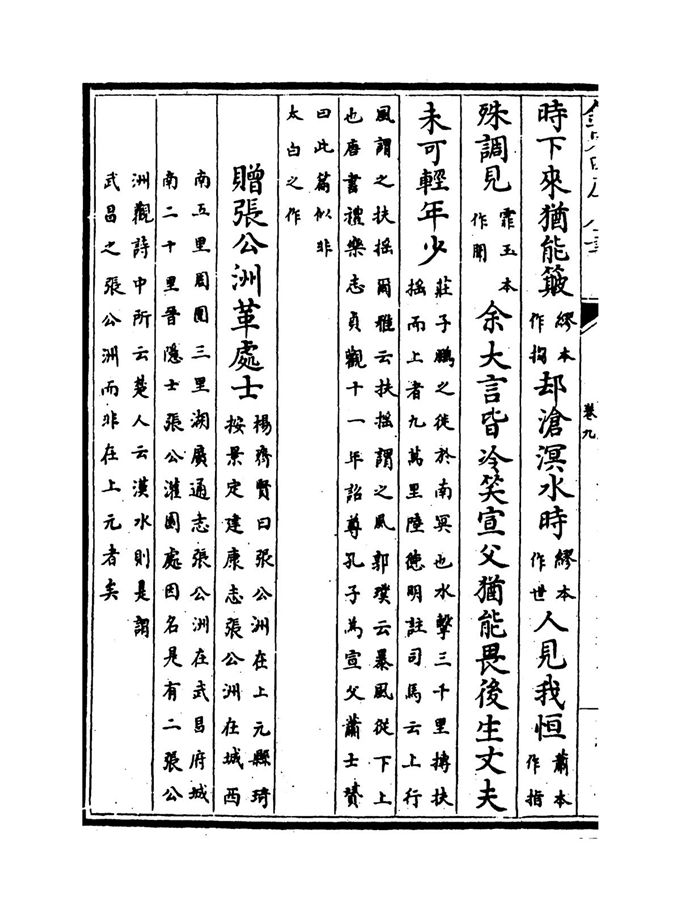 時下來猶能簸(繆本作掏)却滄溟水時(繆本作世)人見我恒(蕭本作指)
殊調見(霏玉本作聞)余大言皆冷笑宣父猶能畏後生丈夫
未可輕年少(莊子鵬之徙於南冥也水擊三千里摶扶
搖而上者九萬里陸德明註司馬云上行
風謂之扶搖爾雅云扶搖謂之風郭璞云暴風從下上
也唐書禮樂志貞觀十一年詔尊孔子為宣父蕭士贇
曰此篇似非
太白之作)
贈張公洲革處士(楊齊賢曰張公洲在上元縣琦
按景定建康志張公洲在城西
南五里周圍三里湖廣通志張公洲在武昌府城
南二十里晉隱士張公灌園處因名是有二張公
洲觀詩中所云楚人云漢水則是謂
武昌之張公洲而非在上元者矣)
卷九